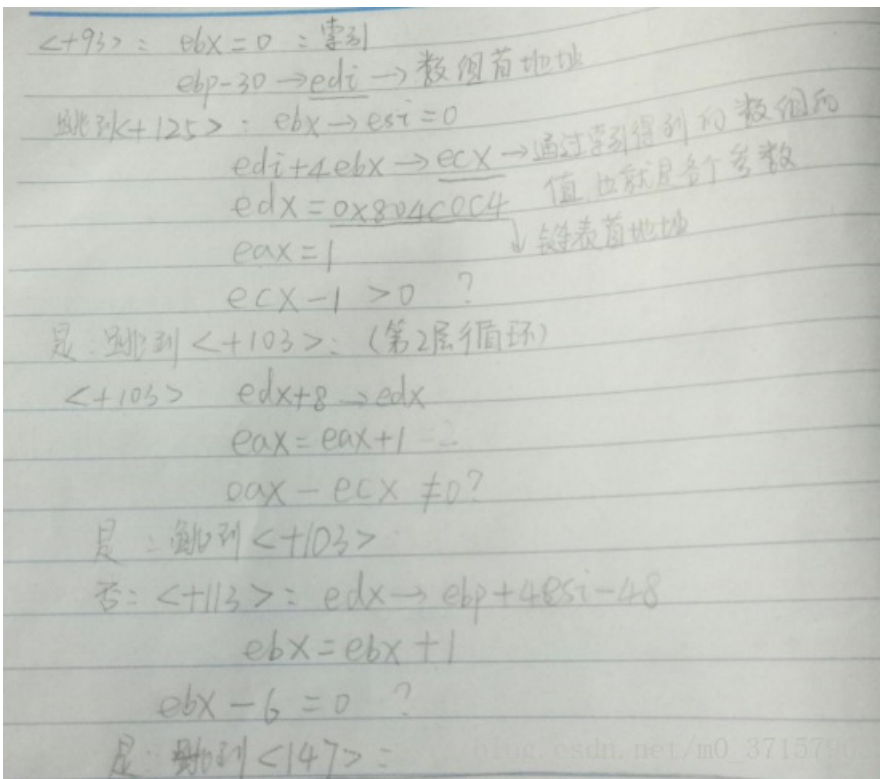 <+93>: ebx=0 :索引
ebp-30→edi→数组首地址
跳到<+125>: ebx→esi=0
edi+4ebx→ecx→通过索引得到的数组的
值,也就是各个参数
edx=0x804c0c4
↓链表首地址
eax=1
ecx-1>0 ?
是:跳到<+103>:(第2层循环)
<+103> edx+8→edx
eax=eax+1
eax-ecx≠0?
是:跳到<+103>
否:<+113>: edx→ebp+4esi-48
ebx=ebx+1
ebx-6=0 ?
是:跳到<147>:
blog.csdn.net/m0_371579